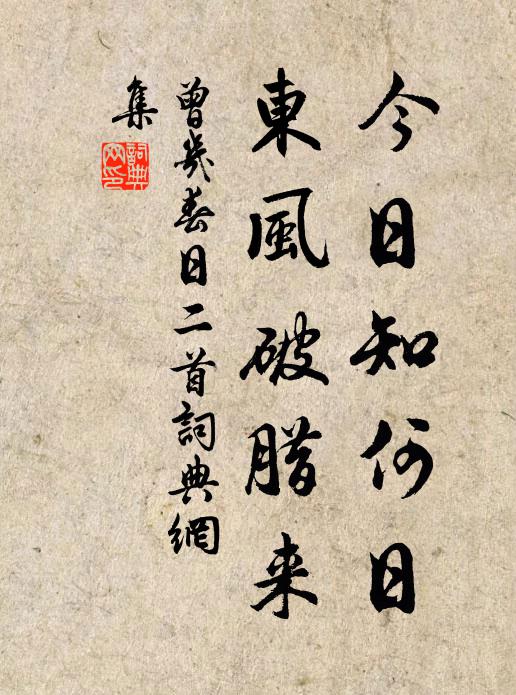 今日知何日
東風破腊来
曾幾春日二首詞典網
集
詞典
网印